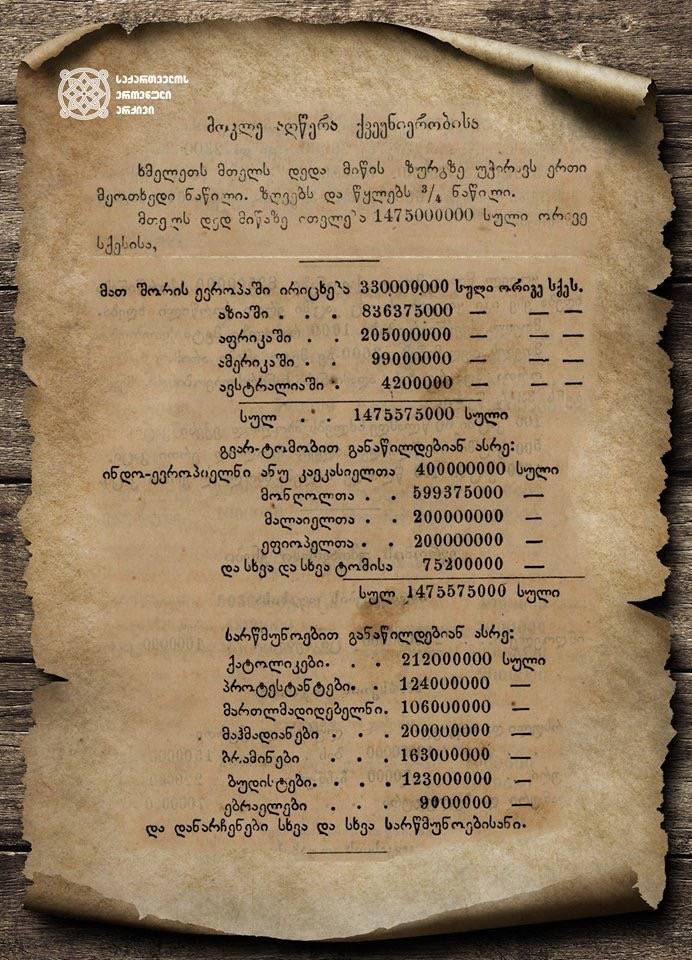 საქართველოს
ეროვნული
არქივი
მოკლე აღწერა ქვეყნიერობისა
ხმელეთს მთელს დედა მიწის ზურგზე უჭირავს ერთი
მეოთხედი ნაწილი. ზღვებს და წყლებს 3/4 ნაწილი.
მთელს დედ მიწაზე ითვლება 1475000000 სული ორივე
სქესისა,
მათ შორის ევროპაში ირიცხება 330000000 სული ორივე სქეს.
აზიაში . . . 836375000 — — —
აფრიკაში . . 205000000 — — —
ამერიკაში . . 99000000 — — —
ავსტრალიაში . 4200000 — — —
სულ . . 1475575000 სული
გვარ-ტომობით განაწილდებიან ასრე:
ინდო-ევროპიელნი ანუ კავკასიელთა 400000000 სული
მონღოლთა . . 599375000 —
მალაიელთა . . 200000000 —
ეფიოპელთა . . 200000000 —
და სხვა და სხვა ტომისა 75200000 —
სულ 1475575000 სული
სარწმუნოებით განაწილდებიან ასრე:
ქატოლიკები. . . 212000000 სული
პროტესტანტები. . 124000000 —
მართლმადიდებელნი. 106000000 —
მაჰმადიანები . . . 200000000 —
ბრამინები . . . 163000000 —
ბუდისტები. . . . 123000000 —
ებრაელები . . . 9000000 —
და დანარჩენები სხვა და სხვა სარწმუნოებისანი.